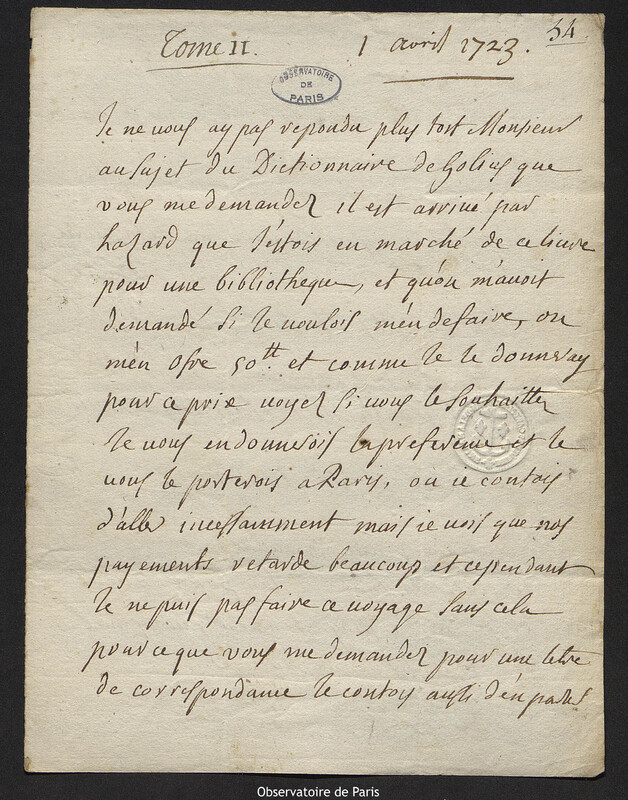 54
Tome II. 1 avril 1723.
OBSERVATOIRE
DE
PARIS
Je ne vous ay pas repondu plus tost Monsieur
au sujet du Dictionnaire de Golius que
vous me demandez il est arrivé par
hazard que j'estois en marché de ce livre
pour une bibliotheque, et qu'on m'avoit
demandé si je voulois m'en defaire, on
m'en ofre 50tt. et comme je le donneray
pour ce prix voyez si vous le souhaittez
je vous en donnerois la preference et je
vous le porterois a Paris, ou je contois
d'aller incessamment mais je vois que nos
payements retarde beaucoup et cependant
je ne puis pas faire ce voyage sans cela
pour ce que vous me demandez pour une letre
de correspondance je contois aussi d'en parler
Observatoire de Paris